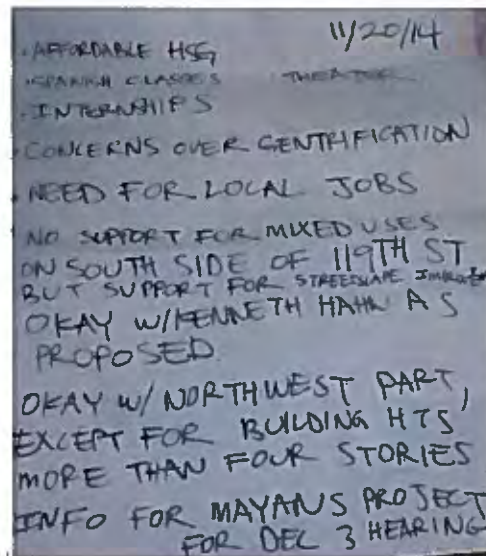 11/20/14
· AFFORDABLE HSG
· SPANISH CLASSES THEATER
· INTERNSHIPS
· CONCERNS OVER GENTRIFICATION
· NEED FOR LOCAL JOBS
NO SUPPORT FOR MIXED USES
ON SOUTH SIDE OF 119TH ST
BUT SUPPORT FOR STREETSCAPE
OKAY W/KENNETH HAHN AS
PROPOSED
OKAY W/ NORTHWEST PART,
EXCEPT FOR BUILDING HTS
MORE THAN FOUR STORIES
INFO FOR MAYANS PROJECT
FOR DEC 3 HEARING